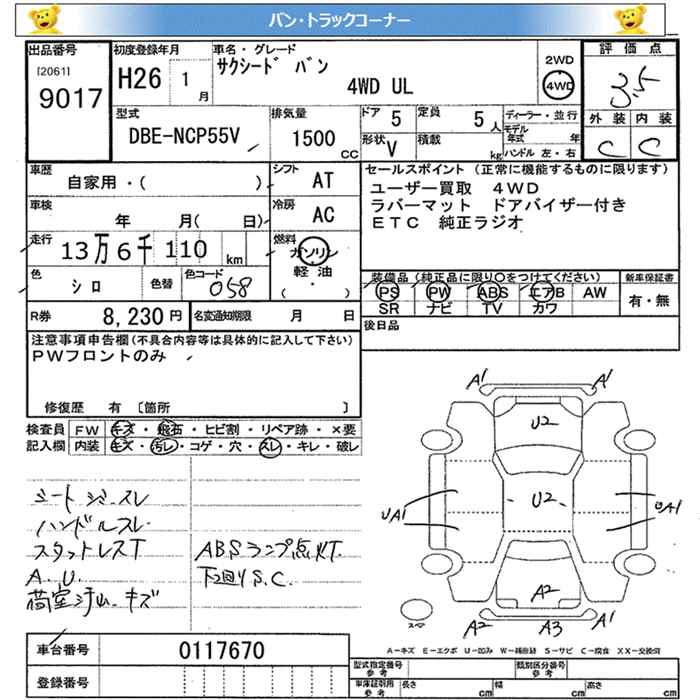 バン・トラックコーナー
出品番号 初度登録年月 車名・グレード 評価点
[2061] サクシード バン 2WD
9017 H26 1月 4WD UL 4WD 3.5
型式 排気量 ドア 5 定員 5人 ディーラー・並行 外装 内装
DBE-NCP55V 1500CC 形状 V 積載 kg モデル年式 年 C C
ハンドル 左・右
車歴 自家用・( ) シフト AT セールスポイント (正常に機能するものに限ります)
車検 年 月( 日) 冷房 AC ユーザー買取 4WD
ラバーマット ドアバイザー付き
走行 13万6千110km 燃料 ガソリン ETC 純正ラジオ
軽油
(・)
色 シロ 色替 色コード 058 装備品 (純正品に限り○をつけてください) 新車保証書
PS PW ABS エアB AW 有・無
SR ナビ TV カワ
R券 8,230円 名変通知期限 月 日 後日品
注意事項申告欄 (不具合内容等は具体的に記入して下さい)
PWフロントのみ
修復歴 有 〔箇所 〕
検査員 FW キズ・飛石・ヒビ割・リペア跡・×要
記入欄 内装 キズ・汚レ・コゲ・穴・スレ・キレ・破レ
シートシミ.スレ
ハンドルスレ
スタットレスT ABSランプ点灯.
A.U. 下回りS.C.
荷室汚ム.キズ
A1 A1
U2
UA1 U2 UA1
A2
A2 A3 A1
スペア
A－キズ E－エクボ U－凹み W－補修跡 S－サビ C－腐食 XX－交換済
車台番号 0117670
登録番号
型式指定番号 参考 類別区分番号 参考
車庫証明用 参考 長さ cm 幅 cm 高さ cm